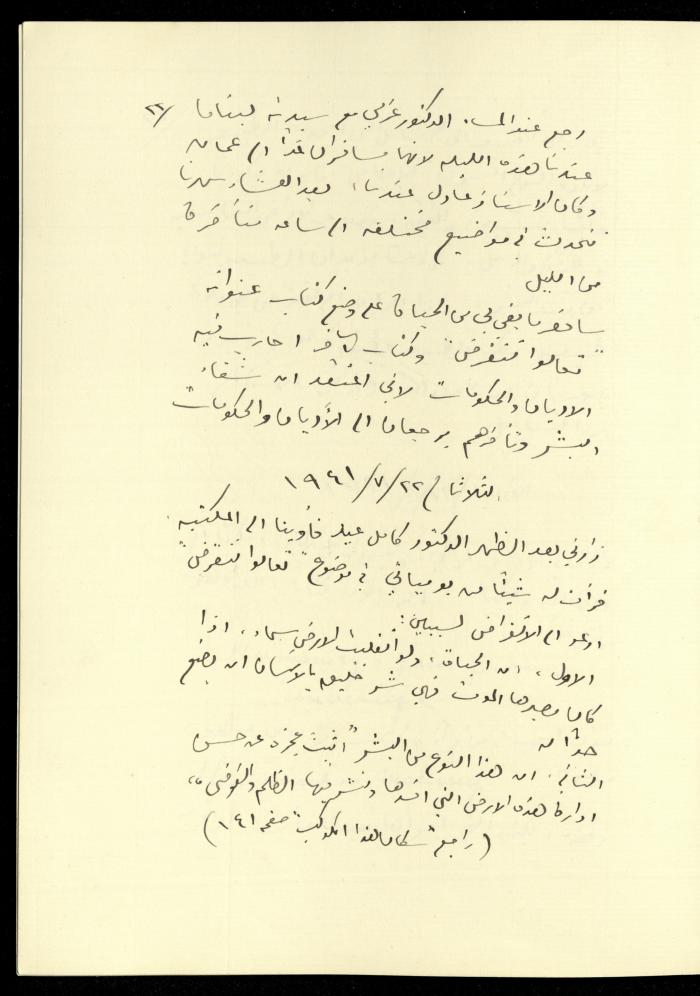 ٢٢/
رجع عند المساء الدكتور عزمي مع سيدته ليناما
عندنا هذه الليلة لانهما مسافران غداً الى عمان
وكان الاستاذ عادل عندنا، بعد العشاء سهرنا
نتحدث في مواضيع مختلفه الى ساعه متأخرة
من الليل
سأصرف ما بقي لي من الحياة على وضع كتاب عنوانه
"تعالوا ننقرض" وكتاب آخر احارب فيه
الاديان والحكومات لاني اعتقد ان شقاء
البشر وتنافرهم يرجعان الى الأديان والحكومات
الثلاثاء ٢٢/٧/١٩٤١
زارني بعد الظهر الدكتور كامل عياد فأوينا الى المكتبه
قرأت له شيئاً من يومياتي في موضوع "تعالوا ننقرض"
ادعو الى الانقراض لسببين:
الاول، ان الحياة، ولو انقلبت الارض سماء، اذا
كان مصيرها الموت فهي شر خليق بالانسان ان يضع
حداً له
الثاني، ان هذا النوع من البشر اثبت عجزه عن حسن
ادارة هذه الارض التي افسدها ونشر فيها الظلم والفوضى"
(راجع "سكان هذا الكوكب" صفحه ١٤١)